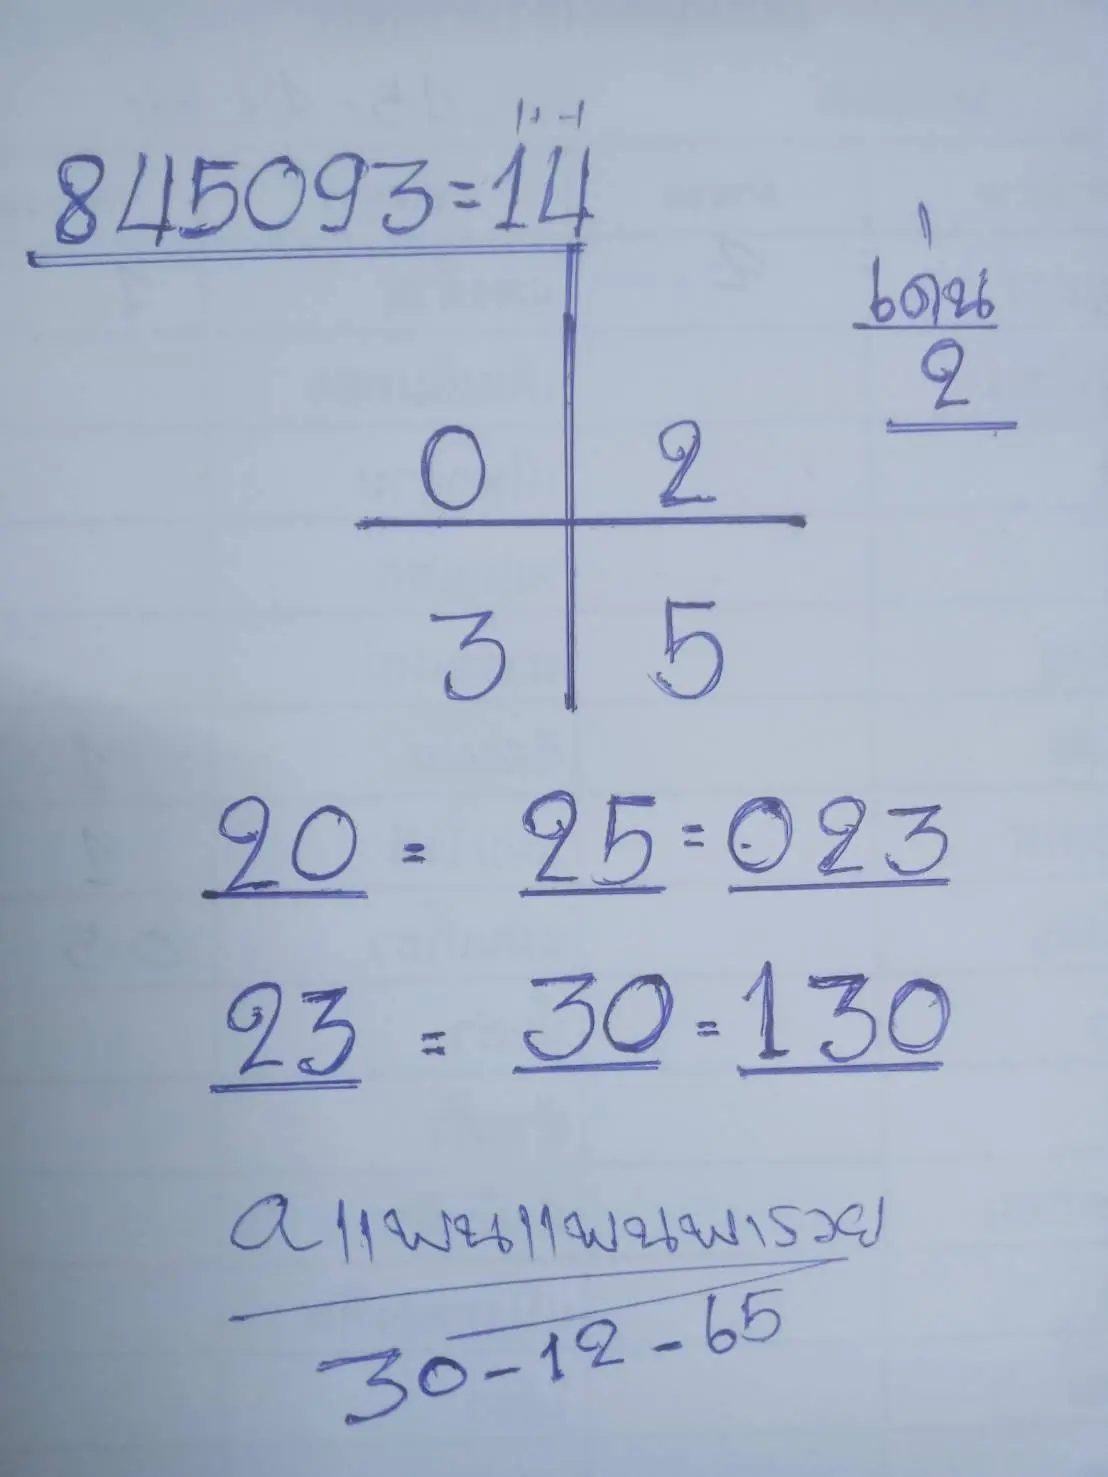 1+ -1
845093=14
เด่น
2
0 2
3 5
20 = 25 = 023
23 = 30 = 130
a แพนแพนพารวย
30-12-65